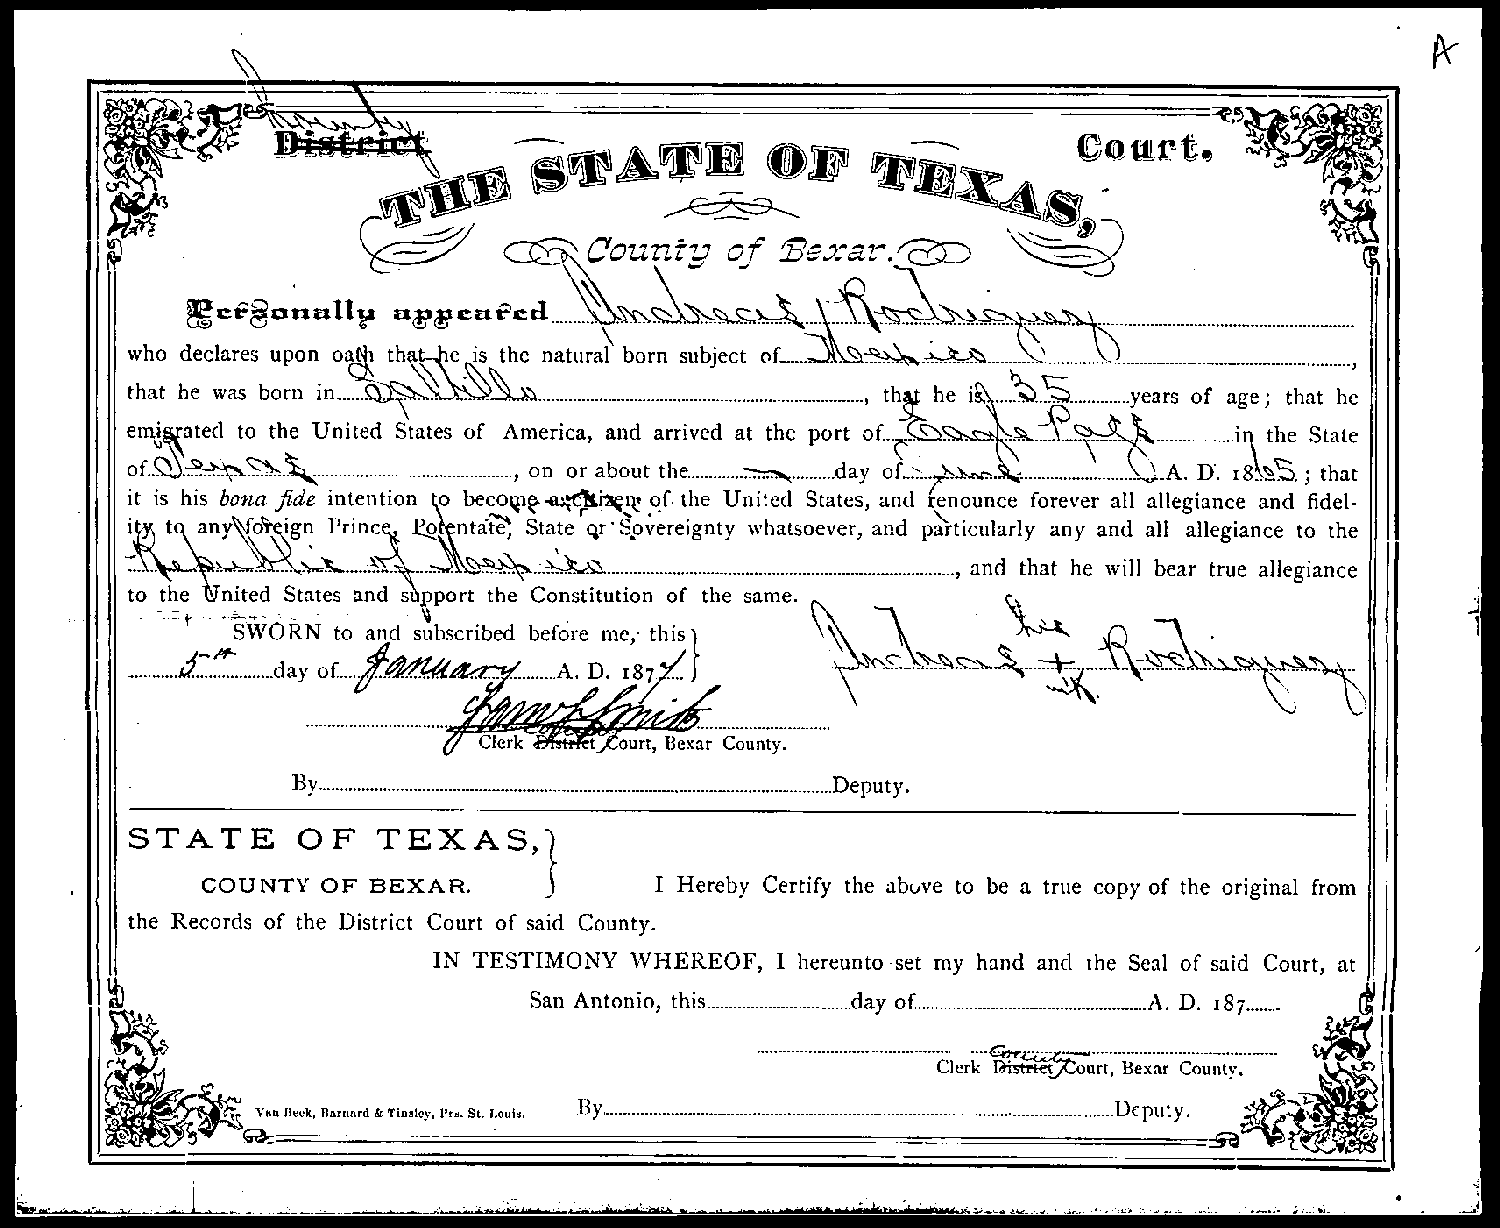 A
County
District Court.
THE STATE OF TEXAS,
County of Bexar.
Personally appeared Andreas Rodriguez
who declares upon oath that he is the natural born subject of Mexico,
that he was born in Saltillo, that he is 35 years of age; that he
emigrated to the United States of America, and arrived at the port of Eagle Pass in the State
of Texas, on or about the — day of June A. D. 1865; that
it is his bona fide intention to become a citizen of the United States, and renounce forever all allegiance and fidel-
ity to any foreign Prince, Potentate, State or Sovereignty whatsoever, and particularly any and all allegiance to the
Republic of Mexico, and that he will bear true allegiance
to the United States and support the Constitution of the same.
SWORN to and subscribed before me, this
5th day of January A. D. 1877
Andreas his + mk Rodriguez
Sam S Smith
Clerk District Court, Bexar County.
By Deputy.
STATE OF TEXAS,
COUNTY OF BEXAR.
I Hereby Certify the above to be a true copy of the original from
the Records of the District Court of said County.
IN TESTIMONY WHEREOF, I hereunto set my hand and the Seal of said Court, at
San Antonio, this day of A. D. 187
County
Clerk District Court, Bexar County.
Van Beek, Barnard & Tinsley, Prs. St. Louis. By Deputy.